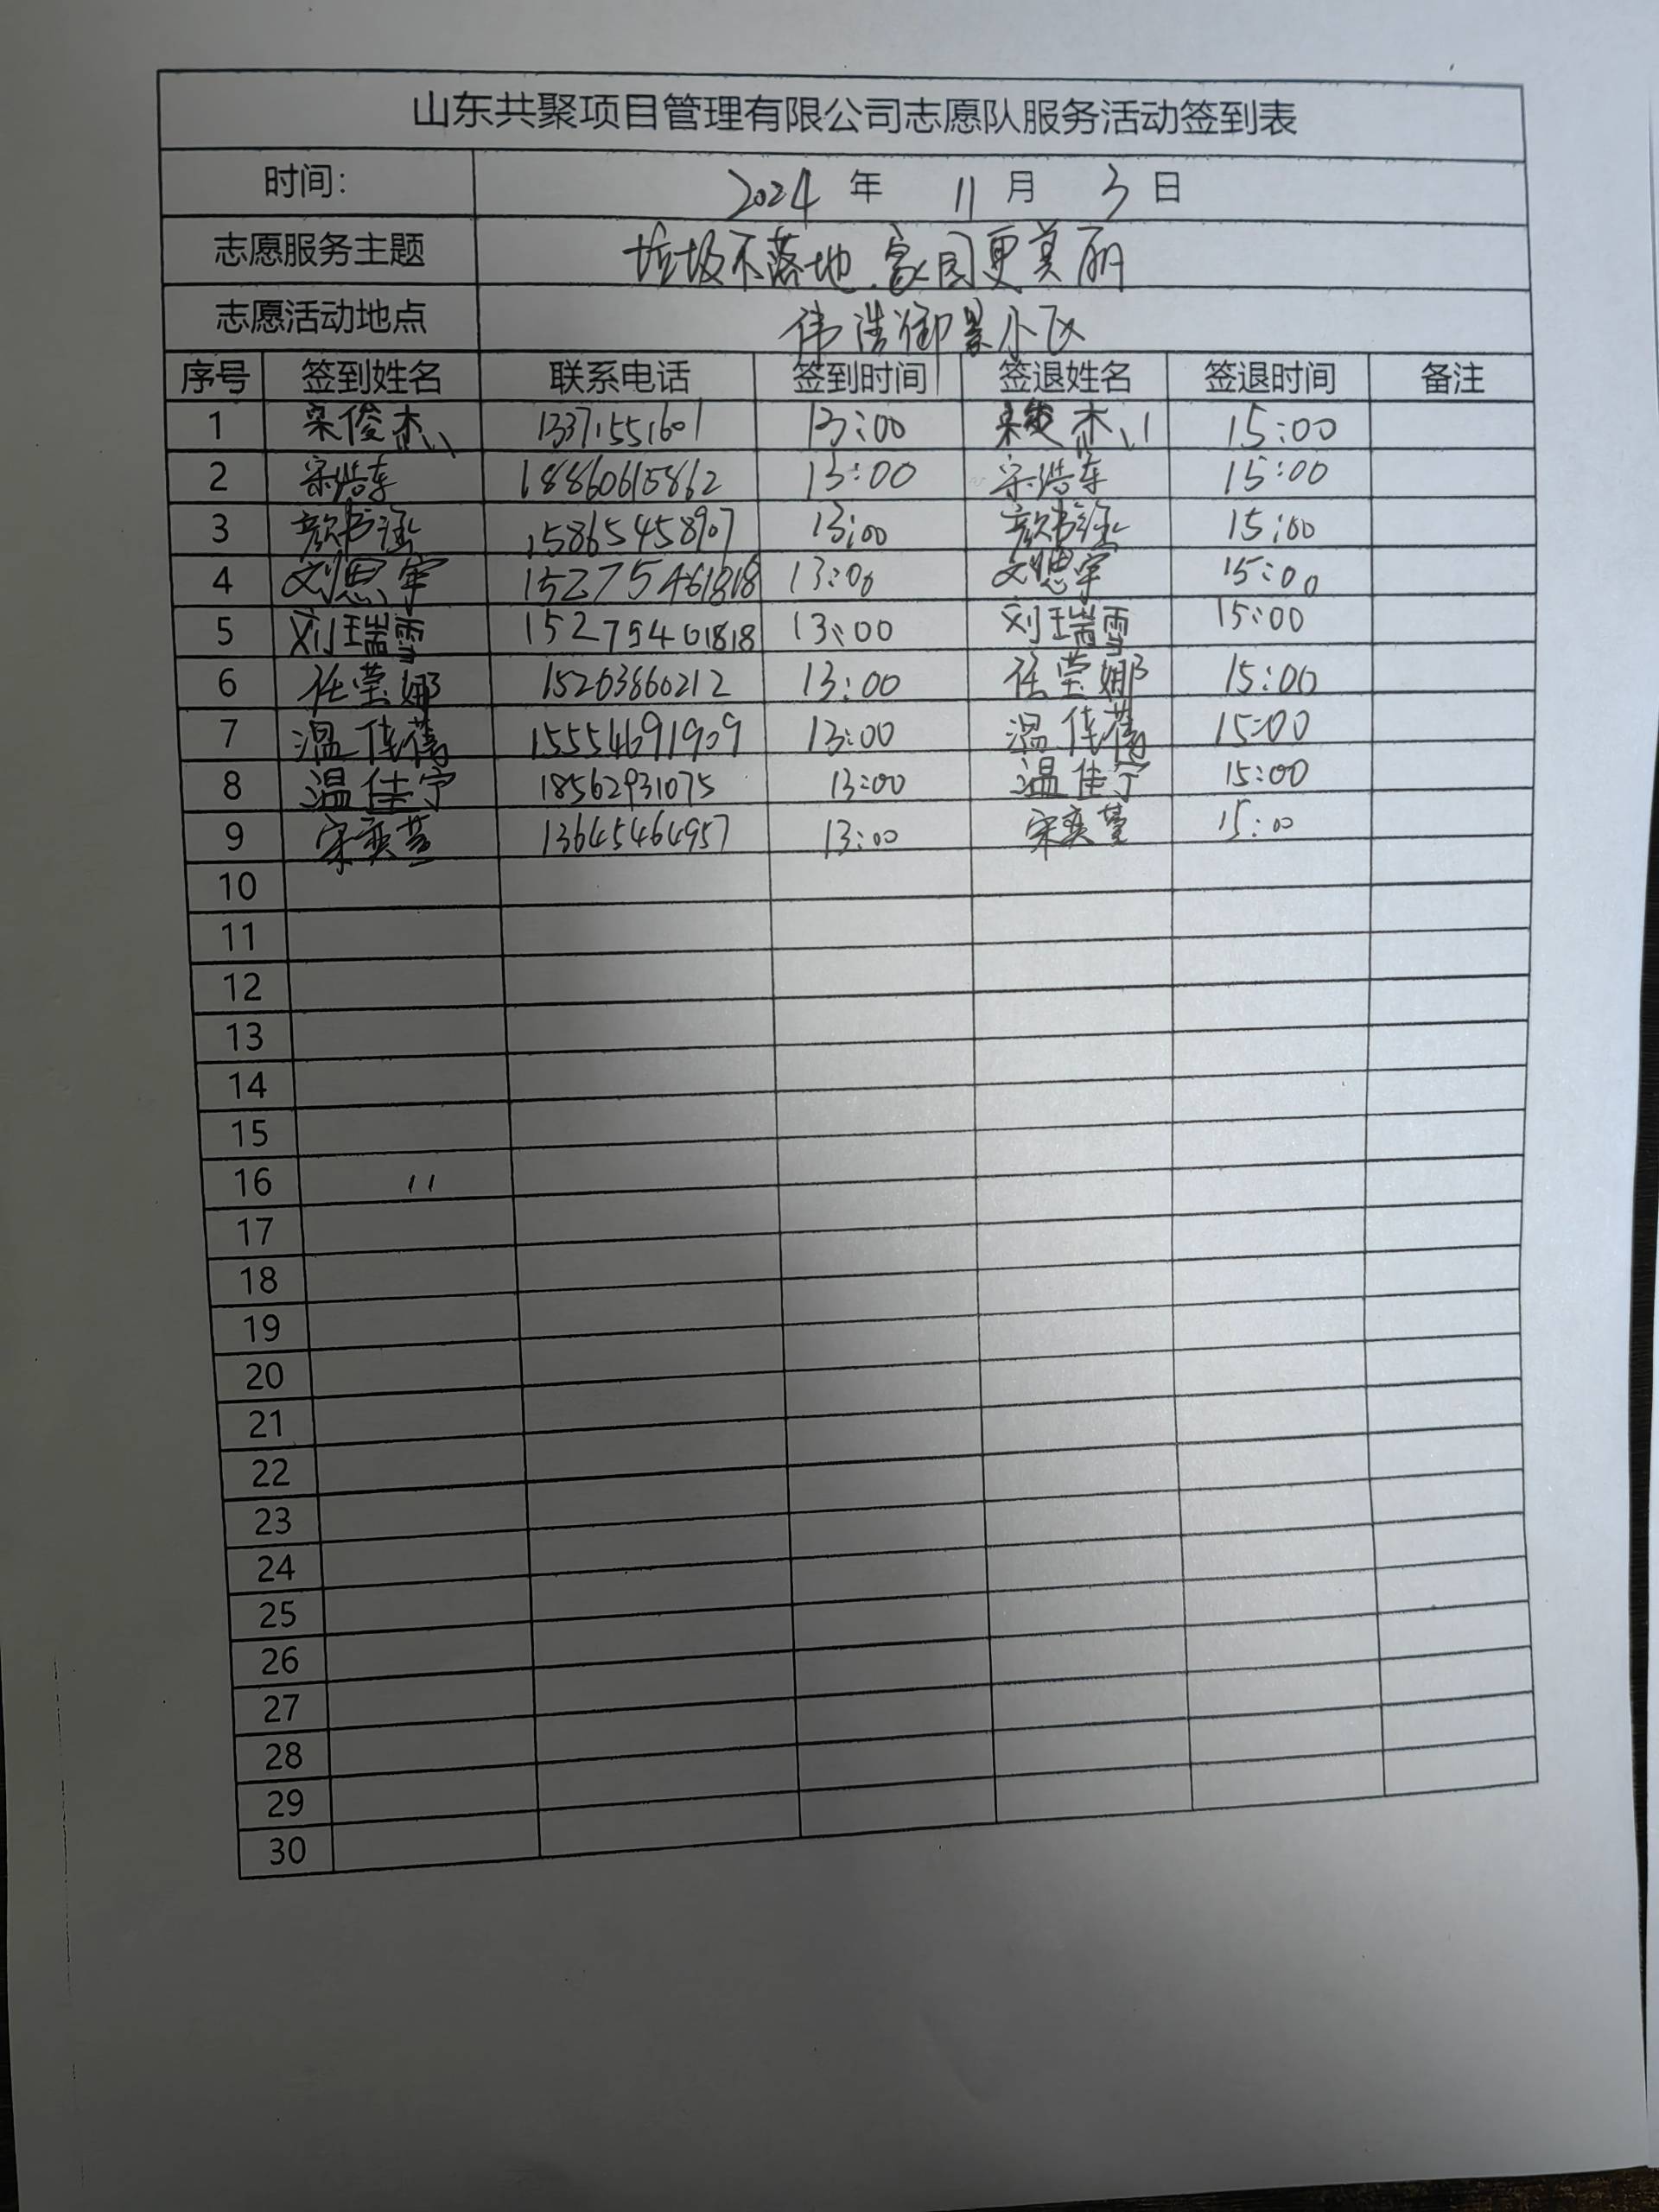 山东共聚项目管理有限公司志愿队服务活动签到表
时间: 2024 年 11 月 3 日
志愿服务主题 垃圾不落地.家园更美丽
志愿活动地点 伟浩御景小区
序号 签到姓名 联系电话 签到时间 签退姓名 签退时间 备注
1 宋俊杰 13371551601 13:00 宋俊杰 15:00
2 宋浩车 18860615862 13:00 宋浩车 15:00
3 颜书涵 15865458907 13:00 颜书涵 15:00
4 刘思宇 15275461818 13:00 刘思宇 15:00
5 刘瑞雪 15275461818 13:00 刘瑞雪 15:00
6 任莹娜 15263860212 13:00 任莹娜 15:00
7 温佳蒨 15554691909 13:00 温佳蒨 15:00
8 温佳宁 18562931075 13:00 温佳宁 15:00
9 宋奕萱 13645464957 13:00 宋奕萱 15:00
10
11
12
13
14
15
16
17
18
19
20
21
22
23
24
25
26
27
28
29
30